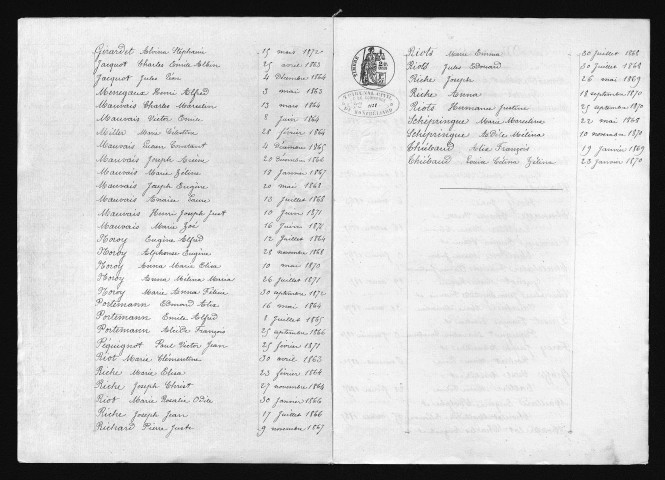 Girardet Alvina Stéphanie 15 mars 1872
Jacquot Charles Emile Albin 25 avril 1863
Jacquot Jules Léon 4 Décembre 1864
Monegaux Henri Alfred 3 mai 1863
Mauvais Charles Marcelin 13 mai 1864
Mauvais Victor Emile 8 Juin 1864
Millet Marie Célestine 28 février 1864
Mauvais Lucien Constant 4 Décembre 1865
Mauvais Joseph 20 Décembre 1866
Mauvais Marie Zéline 18 Janvier 1867
Mauvais Joseph Eugène 20 mai 1868
Mauvais Laure 13 Juillet 1868
Mauvais Henri Joseph Just 10 Juin 1871
Mauvais Marie Zoé 16 Juin 1871
Noroy Eugène Alfred 12 Juillet 1864
Noroy Alphonse Eugène 28 novembre 1868
Noroy Anna Marie Elisa 10 mai 1870
Noroy Anna Mélina Maria 26 Juillet 1871
Noroy Marie Anna 30 septembre 1872
Portemann Edmond Elix 16 mai 1864
Portemann Emile Alfred 8 Juillet 1865
Portemann Alcide François 25 septembre 1866
Péquignot Paul Victor Jean 25 février 1871
Riot Marie Clémentine 30 avril 1863
Riche Marie Elisa 23 février 1864
Riche Joseph Christ 27 novembre 1864
Riot Marie Rosalie Odile 30 Janvier 1866
Riche Joseph Jean 17 Juillet 1866
Richard Pierre Juste 9 novembre 1867
TIMBRE
Riots Marie Emma 30 Juillet 1868
Riots Jules Edouard 30 Juillet 1868
Riche Joseph 26 mai 1869
Riche Anna 18 septembre 1870
Riots Hermance Justine 25 septembre 1870
Schépringue Marie Marceline 22 mai 1868
Schépringue Adèle Mélina 10 novembre 1870
Thiébaud Elie François 19 Janvier 1869
Thiébaud Louisa Célina Zélina 23 Janvier 1870